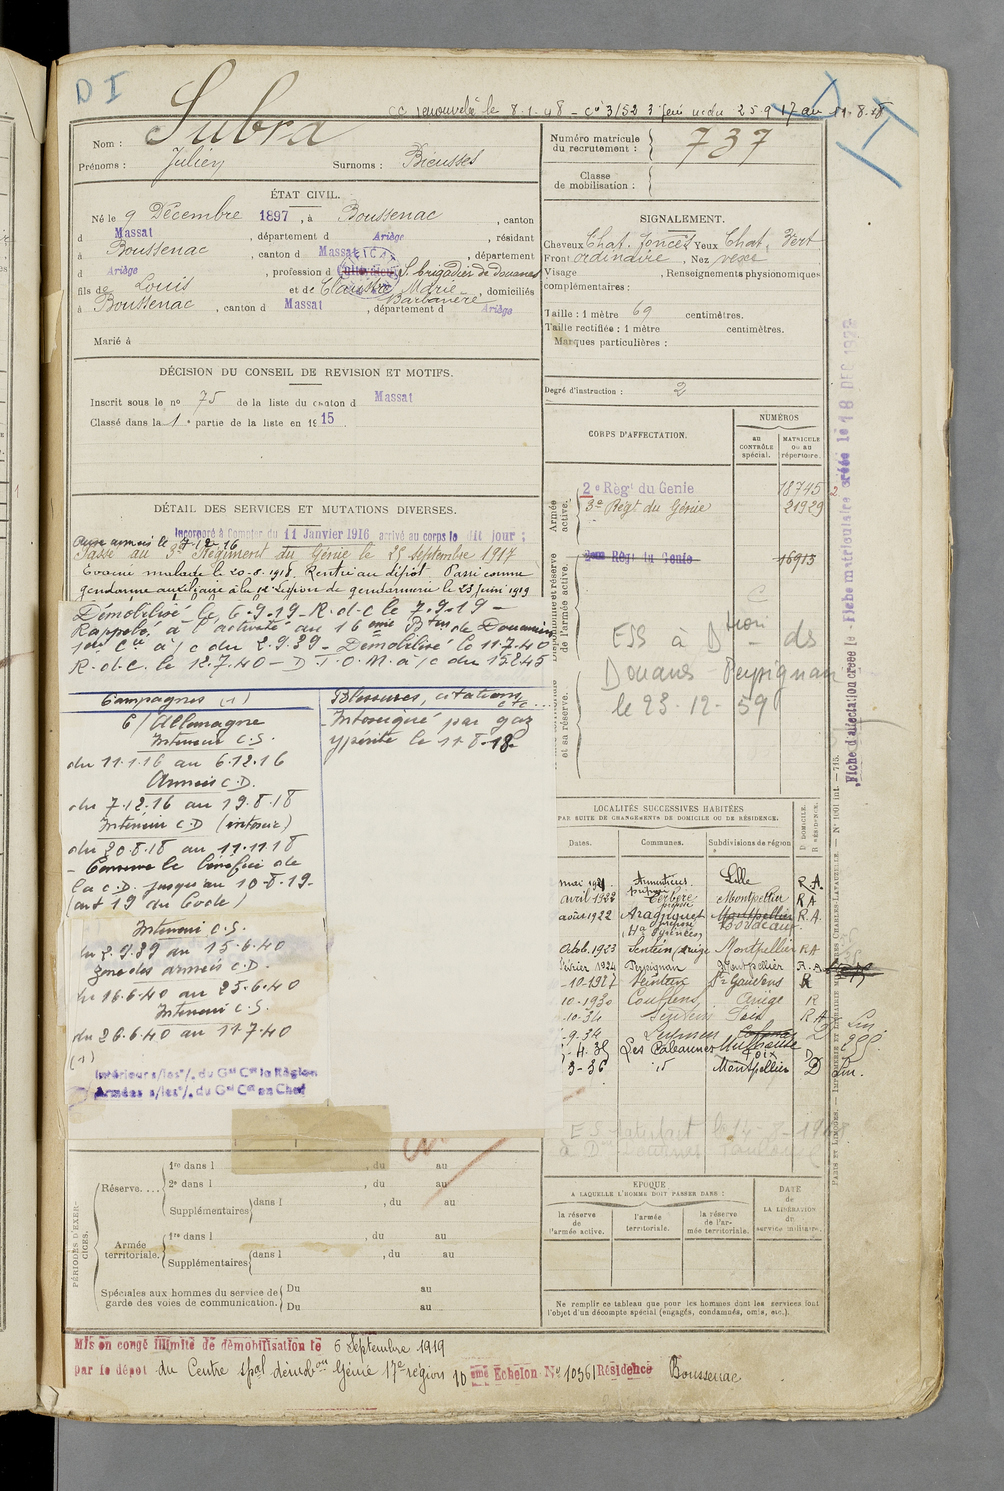 D I
cc renouvelé le 8-1-48 - 
Nom : Subra
Prénoms : Julien Surnoms : Bicusses
Numéro matricule du recrutement : 737
Classe de mobilisation :
ÉTAT CIVIL.
Né le 9 Décembre 1897, à Boussenac, canton
d Massat, département d Ariège, résidant
à Boussenac, canton d Massat, département
d Ariège, profession d Cultivateur S. brigadier de Douanes
fils de Louis et de Marie Barbanère, domiciliés
à Boussenac, canton d Massat, département d Ariège
Marié à
SIGNALEMENT.
Cheveux Chat. foncés Yeux Chat. Vert
Front ordinaire, Nez vexe
Visage , Renseignements physionomiques
complémentaires :
Taille : 1 mètre 69 centimètres.
Taille rectifiée : 1 mètre centimètres.
Marques particulières :
Degré d'instruction : 2
DÉCISION DU CONSEIL DE REVISION ET MOTIFS.
Inscrit sous le no 75 de la liste du canton d Massat
Classé dans la 1e partie de la liste en 1915.
CORPS D'AFFECTATION.
NUMÉROS
au CONTRÔLE spécial.
MATRICULE ou au répertoire.
Armée active.
2e Régt du Génie 18745
3e Régt du Génie 21929
Disponibilité et réserve de l'armée active.
2eme Régt du Genie 16913
ESS à Dtion des
Douanes Perpignan
le 23-12-59
et sa réserve.
DÉTAIL DES SERVICES ET MUTATIONS DIVERSES.
Incorporé à Compter du 11 Janvier 1916 arrivé au corps le dit jour ;
aux armées le 7-12-16
Passé au 3e Régiment du Génie le 25 septembre 1917
Evacué malade le 20-8-1918. Rentré au dépôt Passé comme
gendarme auxiliaire à la 12e Légion de gendarmerie le 23 juin 1919
Démobilisé le 6-9-19-R-d-c le 7.9-19-
Rappelé à l'activité au 16ème Bton de Douaniers
1ère Cie à/c du 2.9.39 - Démobilisé le 11.7.40
R.d.c. le 12.7.40 - D T.O.M. à/c du 15245
Campagnes (1)
C/ Allemagne
Intérieur C.S.
du 11.1.16 au 6.12.16
Armées C.D.
du 7.12.16 au 19.8.18
Intérieur C.D (intoxié)
du 20.8.18 au 11.11.18
- Conserve le bénéfice de
la C.D. jusqu'au 10-8-19-
(art 19 du Code)
Intérieur C.S.
du 2.9.39 au 15.6.40
zone des armées C.D.
du 16.6.40 au 25.6.40
Intérieur C.S.
du 26.6.40 au 11.7.40
(1)
Intérieur s/les o/. du Gal Ct la Région
Armées s/les o/. du Gal Ct en Chef
Blessures, citations, etc...
Intoxiqué par gaz
ypérite le 11-8-18
LOCALITÉS SUCCESSIVES HABITÉES
PAR SUITE DE CHANGEMENTS DE DOMICILE OU DE RÉSIDENCE.
Dates. Communes. Subdivisions de région D DOMICILE. R RÉSIDENCE.
mai 1921 Armentières Lille R.A.
avril 1922 Cerbère Montpellier RA
août 1922 Aragnouet Hes Pyrénées Montpellier Bordeaux R.A.
Octob. 1923 Sentein Ariège Montpellier RA
février 1924 Perpignan Montpellier R.A.
-10-1927 St Gaudens R
10-1930 Couflens Ariège R
10-34 Foix R
9-34
-4-35 Les Cabannes Foix D
3-36 " Montpellier D
EPOQUE
A LAQUELLE L'HOMME DOIT PASSER DANS :
la réserve de l'armée active.
l'armée territoriale.
la réserve de l'armée territoriale.
DATE de LA LIBÉRATION du service militaire.
Ne remplir ce tableau que pour les hommes dont les services font
l'objet d'un décompte spécial (engagés, condamnés, omis, etc.).
PÉRIODES D'EXERCICES.
Réserve....
1re dans l , du au
2e dans l , du au
Supplémentaires dans l , du au
Armée territoriale.
1re dans l , du au
Supplémentaires dans l , du au
Spéciales aux hommes du service de
garde des voies de communication.
Du au
Du au
Mis en congé illimité de démobilisation le 6 Septembre 1919
par le dépôt du Centre spal démobon Génie 17e région 10eme Echelon No 10361 Résidence Boussenac
Fiche d'affectation créée le - Fiche matriculaire créée le 18 DEC 1922
PARIS ET LIMOGES. — IMPRIMERIE ET LIBRAIRIE MILITAIRES CHARLES-LAVAUZELLE. — No 1061 int. — 715.